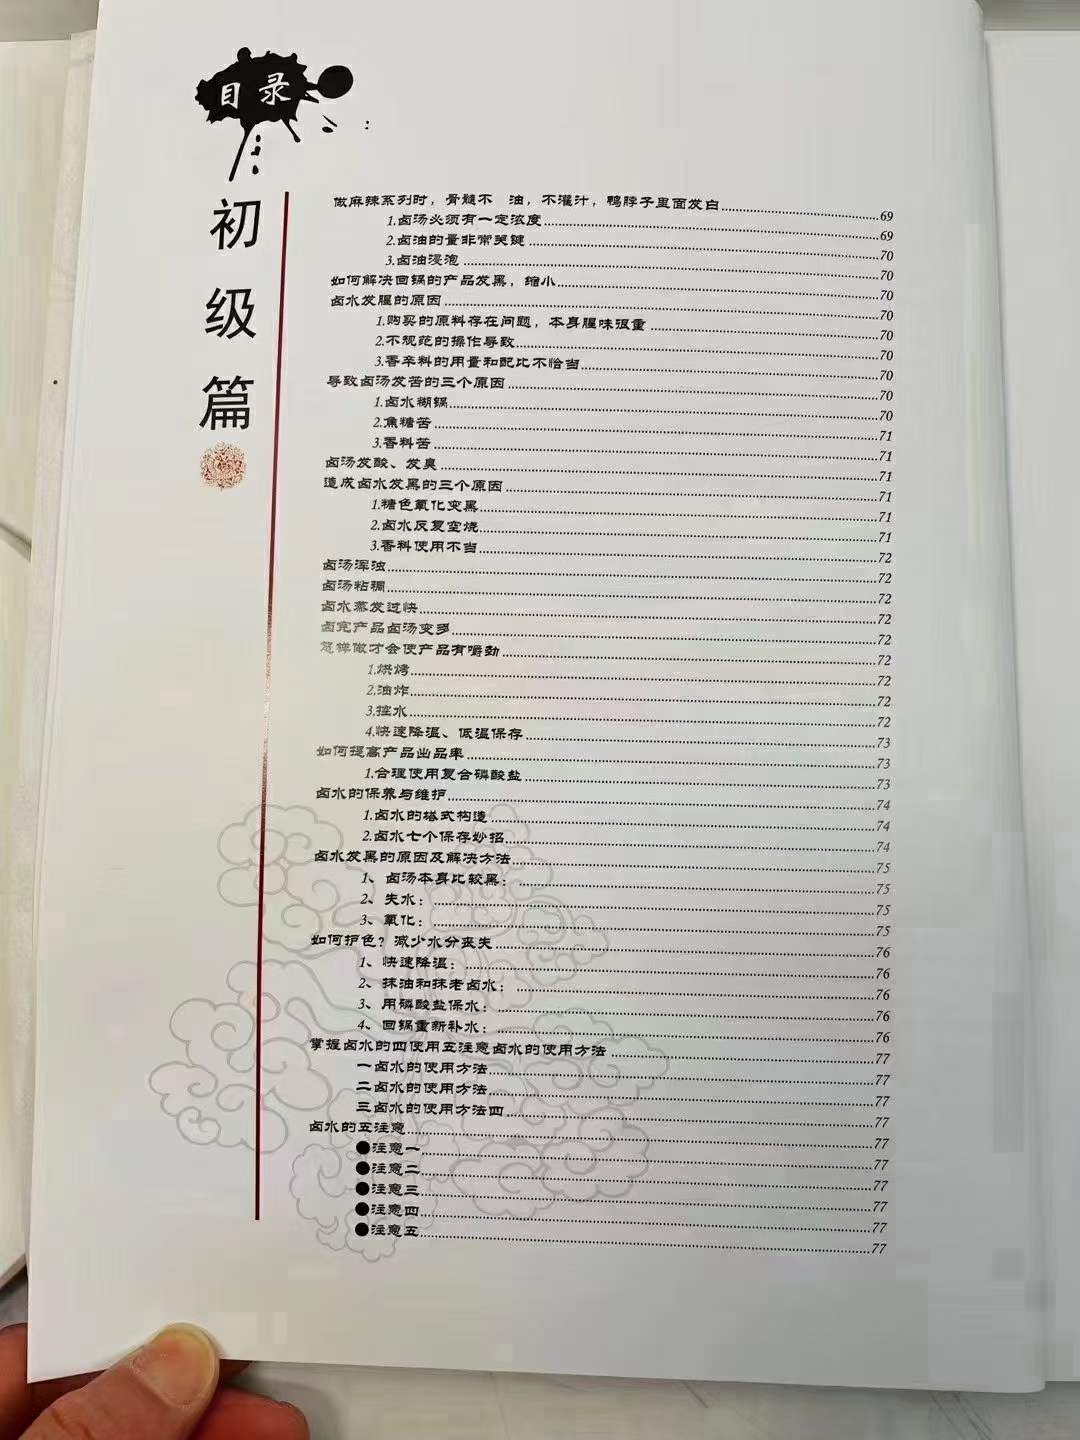 目录
初级篇
做麻辣系列时，骨髓不 油，不灌汁，鸭脖子里面发白 69
1.卤汤必须有一定浓度 69
2.卤油的量非常关键 70
3.卤油浸泡 70
如何解决回锅的产品发黑，缩小 70
卤水发腥的原因 70
1.购买的原料存在问题，本身腥味很重 70
2.不规范的操作导致 70
3.香辛料的用量和配比不恰当 70
导致卤汤发苦的三个原因 70
1.卤水糊锅 70
2.焦糖苦 71
3.香料苦 71
卤汤发酸、发臭 71
造成卤水发黑的三个原因 71
1.糖色氧化变黑 71
2.卤水反复空烧 71
3.香料使用不当 72
卤汤浑浊 72
卤汤粘稠 72
卤水蒸发过快 72
卤完产品卤汤变多 72
怎样做才会使产品有嚼劲 72
1.烘烤 72
2.油炸 72
3.控水 72
4.快速降温、低温保存 73
如何提高产品出品率 73
1.合理使用复合磷酸盐 73
卤水的保养与维护 74
1.卤水的塔式构造 74
2.卤水七个保存妙招 74
卤水发黑的原因及解决方法 75
1、卤汤本身比较黑： 75
2、失水： 75
3、氧化： 75
如何护色？减少水分丧失 76
1、快速降温： 76
2、抹油和抹老卤水： 76
3、用磷酸盐保水： 76
4、回锅重新补水： 76
掌握卤水的四使用五注意卤水的使用方法 77
一卤水的使用方法 77
二卤水的使用方法 77
三卤水的使用方法四 77
卤水的五注意 77
●注意一 77
●注意二 77
●注意三 77
●注意四 77
●注意五 77